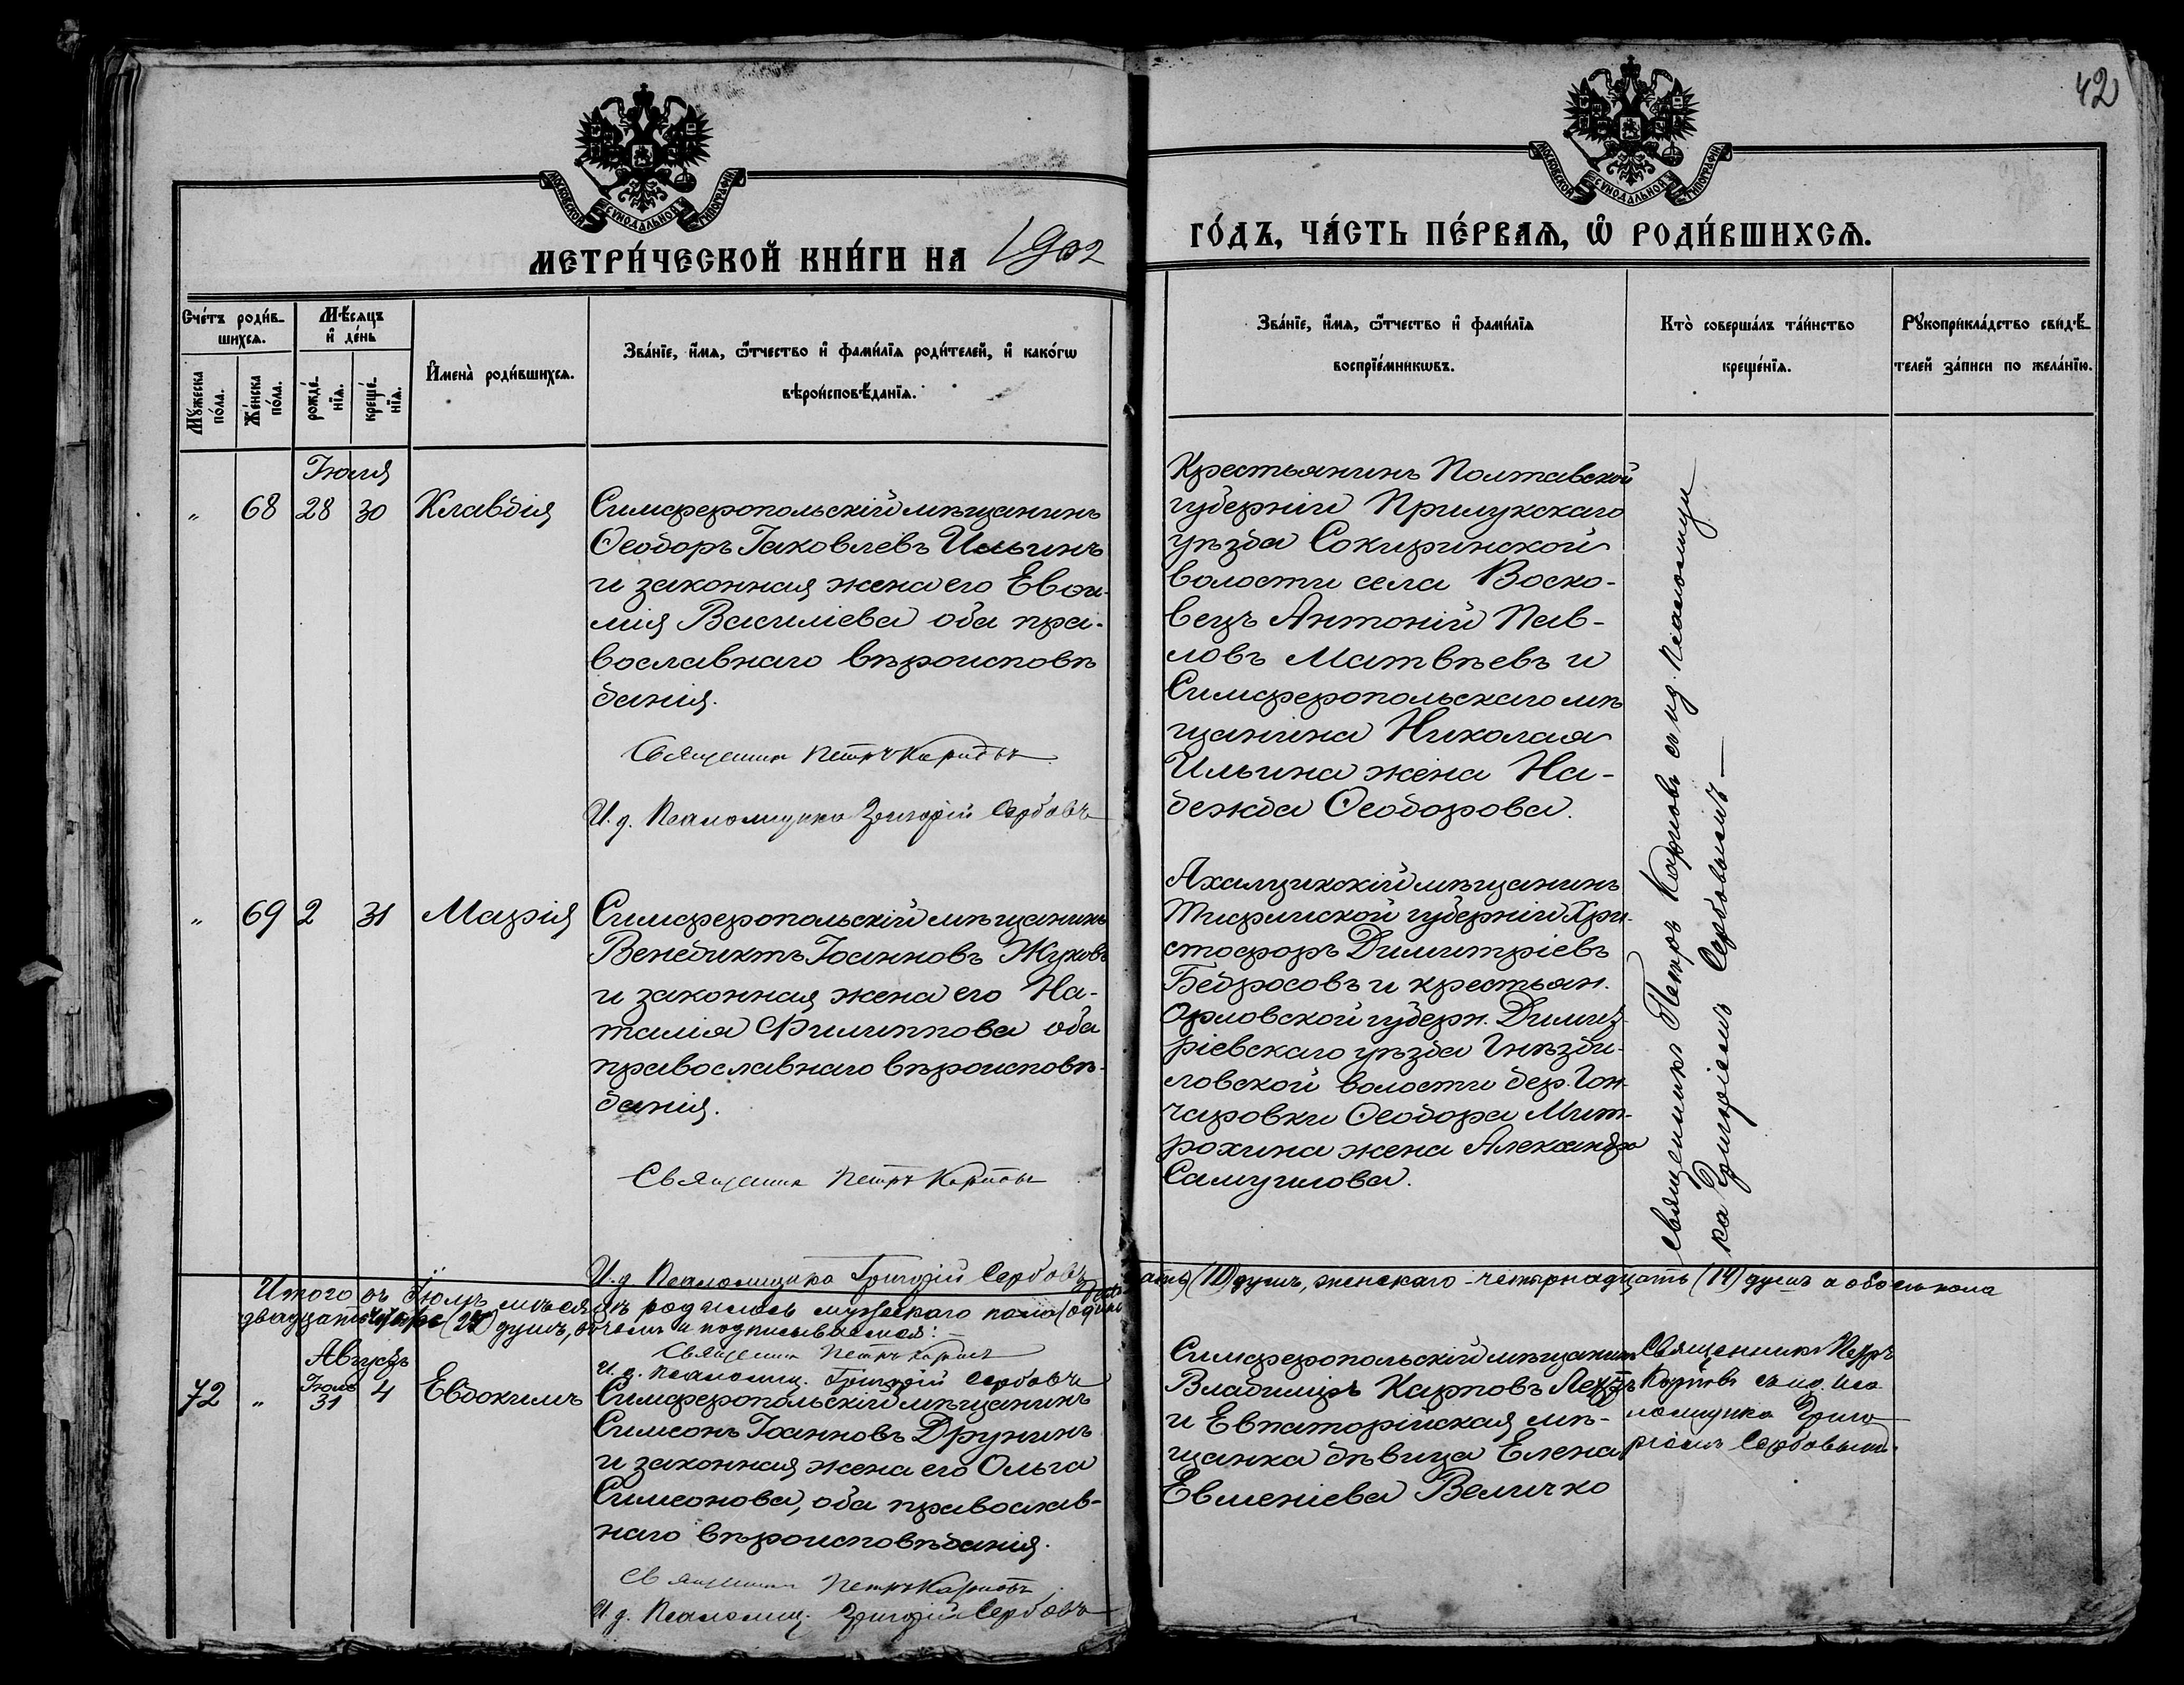 42
МОСКОВСКОЙ СѴНОДАЛЬНОЙ ТИПОГРАФІИ
МОСКОВСКОЙ СѴНОДАЛЬНОЙ ТИПОГРАФІИ
МЕТРИ́ЧЕСКОЙ КНИ́ГИ НА 1902
ГО́ДЪ, ЧА́СТЬ ПЕ́РВАѦ, Ѽ РОДИ́ВШИХСѦ.
Сче́тъ роди́в-
шихсѧ.
Мꙋ́жеска
по́ла.
Же́нска
по́ла.
Мѣ́сѧцъ
и҆ де́нь
рожде́-
нїѧ.
креще́-
нїѧ.
И҆мена̀ роди́вшихсѧ.
Зва́нїе, и҆́мѧ, ѻ҆́тчество и҆ фами́лїѧ роди́телей, и҆ како́гѡ
вѣроисповѣ́данїѧ.
Зва́нїе, и҆́мѧ, ѻ҆́тчество и҆ фами́лїѧ
воспрїе́мникѡвъ.
Кто̀ соверша́лъ та́инство
креще́нїѧ.
Рꙋкоприкла́дство свидѣ́-
телей за́писи по жела́нїю.
Іюля
„ 68 28 30 Клавдія
Симферопольскій мѣщанинъ
Ѳеодоръ Іаковлевъ Ильинъ
и законная жена его Евѳи-
мія Василіева оба пра-
вославнаго вѣроисповѣ
данія.
Священникъ Петръ Карповъ
И. д. Псаломщика Григорій Сербовъ
Крестьянинъ Полтавской
губерніи Прилукскаго
уѣзда Сокиринской
волости села Воско-
вецъ Антоній Пав-
ловъ Матвѣевъ и
Симферопольскаго мѣ
щанина Николая
Ильина жена На-
дежда Ѳеодорова.
Священникъ Петръ Карповъ съ и д. псаломщи
ка Григоріемъ Сербовымъ
„ 69 2 31 Марія
Симферопольскій мѣщанинъ
Венедиктъ Іоанновъ Жуковъ
и законная жена его На-
талія Филиппова оба
православнаго вѣроисповѣ-
данія.
Священникъ Петръ Карповъ
И. д. Псаломщика Григорій Сербовъ
Ахалцихскій мѣщанинъ
Тифлиской губерніи Хри-
стофоръ Димитріевъ
Бедросовъ и крестьян.
Орловской губерн. Димит-
ріевскаго уѣзда Гнѣзди-
ловской волости дер. Гон-
чаровки Ѳеодора Мит-
рохина жена Александра
Самуилова.
Итого въ Іюлѣ мѣсяцѣ родилось мужескаго пола (10) душъ, женскаго четырнадцать (14) душъ а обоего пола
двадцать четыре (24) душъ, въ чемъ и подписываемся:
Священникъ Петръ Карповъ
И. д. Псаломщ. Григорій Сербовъ
Августъ
72 „ Іюль 31 4 Евдокимъ
Симферопольскій мѣщанинъ
Симеонъ Іоанновъ Друнинъ
и законная жена его Ольга
Симеонова, оба православ-
наго вѣроисповѣданія.
Священникъ Петръ Карповъ
И. д. Псаломщ. Григорій Сербовъ
Симферопольскій мѣщанинъ
Владиміръ Карповъ
и Евпаторійская мѣ-
щанка дѣвица Елена
Евменіева Величко
Священникъ Петръ
Карповъ съ и.д. пса
ломщика Григо-
ріемъ Сербовымъ